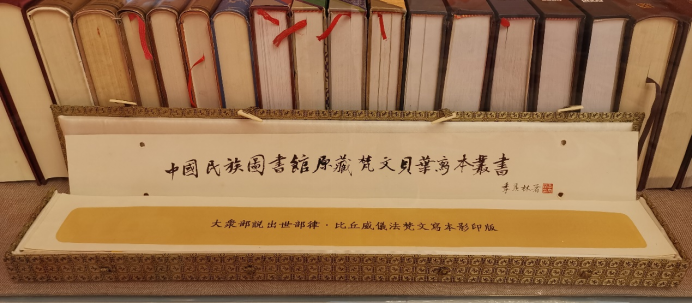 中國民族圖書館原藏梵文貝葉寫本叢書
季羨林署
大衆部說出世部律·比丘威儀法梵文寫本影印版